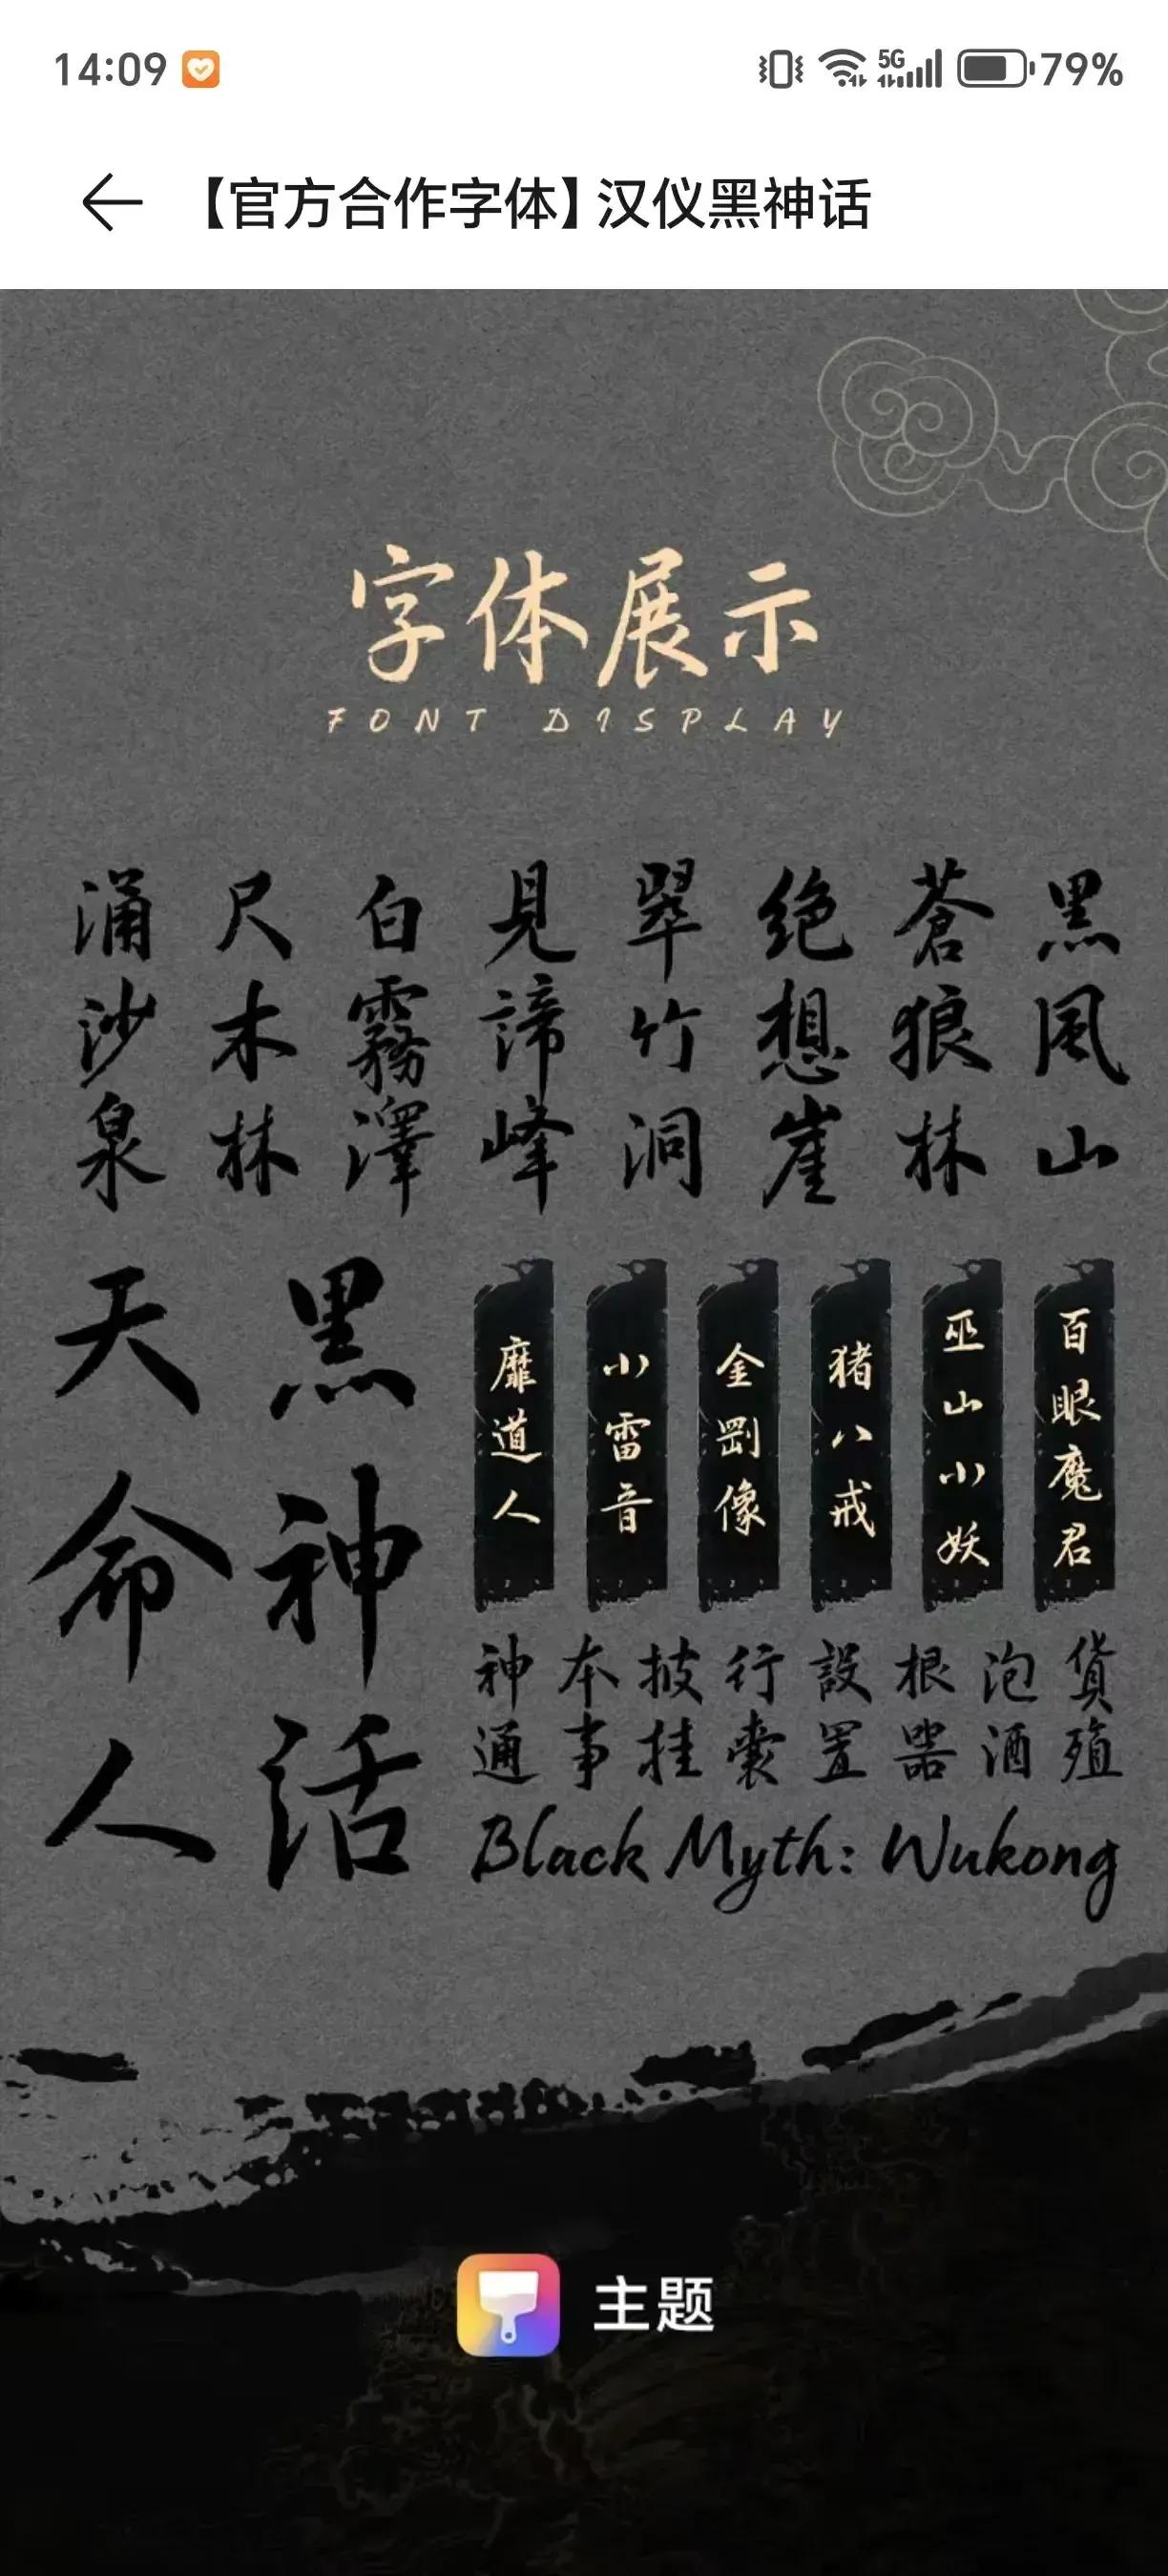 14:09
5G
79%
【官方合作字体】汉仪黑神话
字体展示
FONT DISPLAY
黑风山
蒼狼林
绝想崖
翠竹洞
見諦峰
白霧澤
尺木林
涌沙泉
黑神话
天命人
百眼魔君
巫山小妖
猪八戒
金剛像
小雷音
靡道人
貨殖
泡酒
根器
設置
行囊
披挂
本事
神通
Black Myth: Wukong
主题